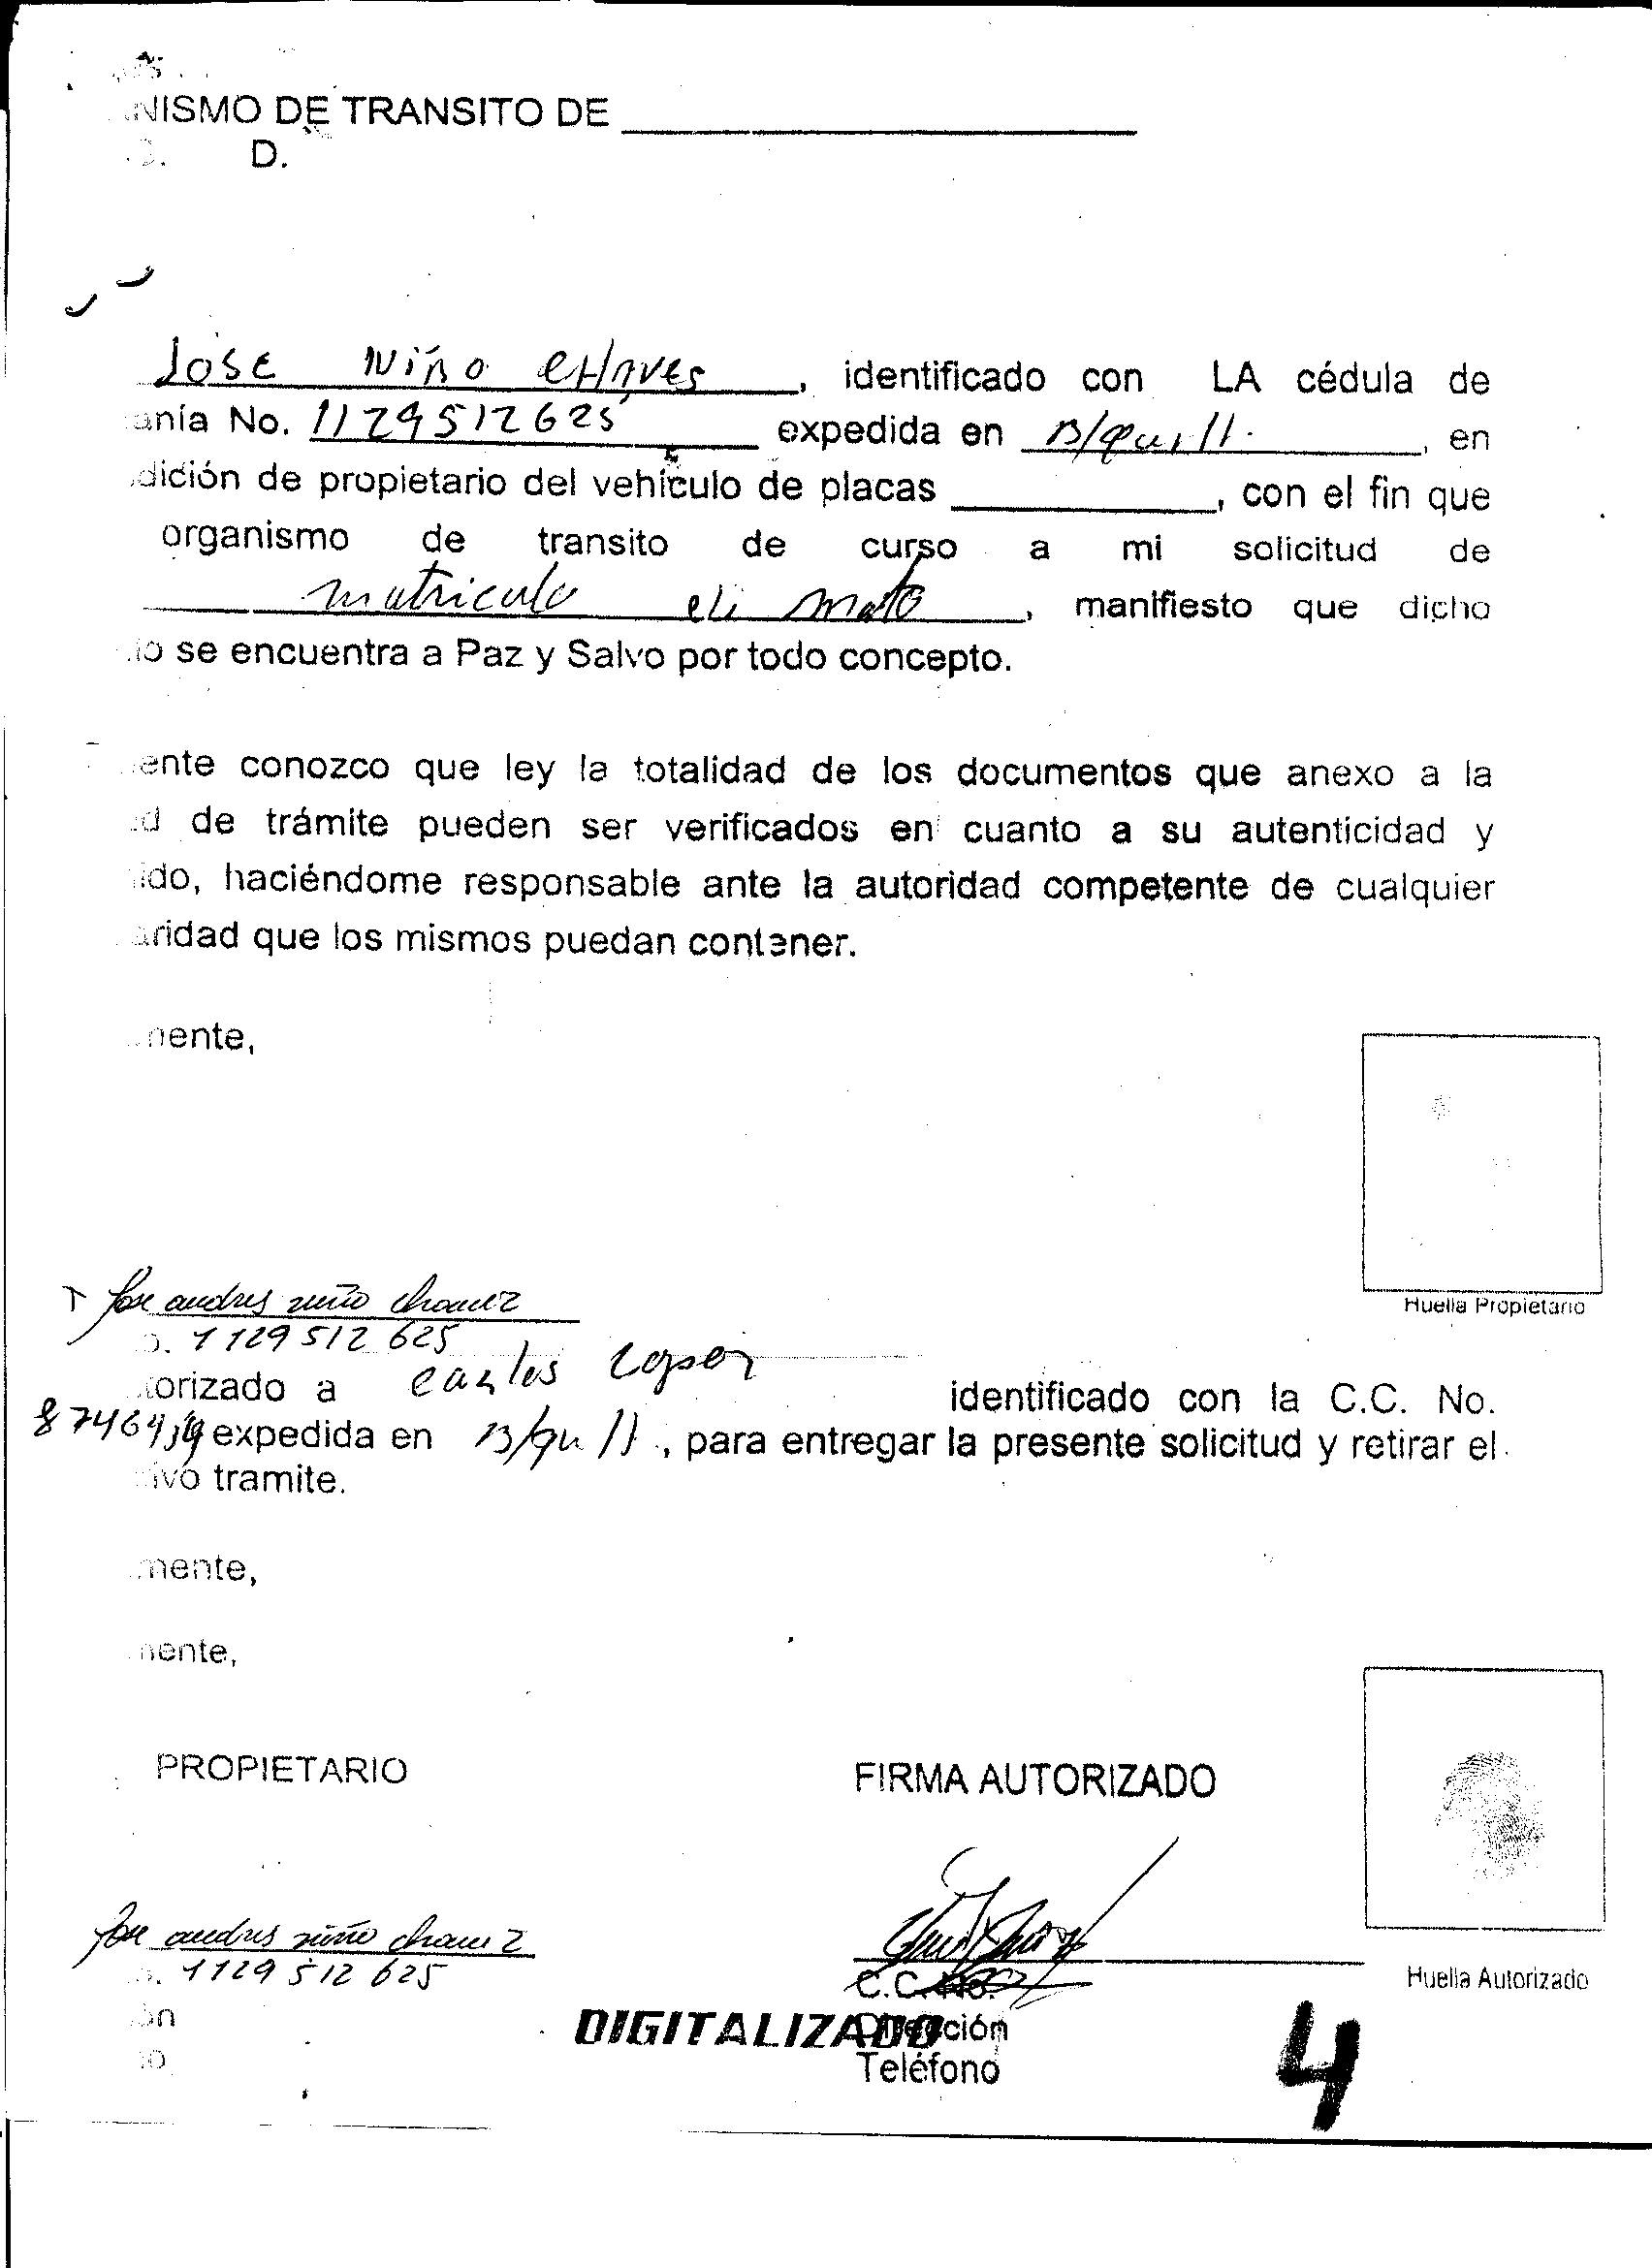 NISMO DE TRANSITO DE
D.
Jose Niño Chaves, identificado con LA cédula de
anía No. 1129512625 expedida en B/quill., en
dición de propietario del vehículo de placas , con el fin que
organismo de transito de curso a mi solicitud de
matricula de moto, manifiesto que dicho
io se encuentra a Paz y Salvo por todo concepto.
ente conozco que ley la totalidad de los documentos que anexo a la
d de trámite pueden ser verificados en cuanto a su autenticidad y
ido, haciéndome responsable ante la autoridad competente de cualquier
aridad que los mismos puedan contener.
nente,
Huella Propietario
Jose andres niño chavez
1129 512 625
torizado a Carlos identificado con la C.C. No.
expedida en B/qull, para entregar la presente solicitud y retirar el
ivo tramite.
mente,
nente,
PROPIETARIO
FIRMA AUTORIZADO
Jose andres niño chavez
1129 512 625
C.C. No.
Huella Autorizado
ón
DIGITALIZADO
Dirección
Teléfono
4